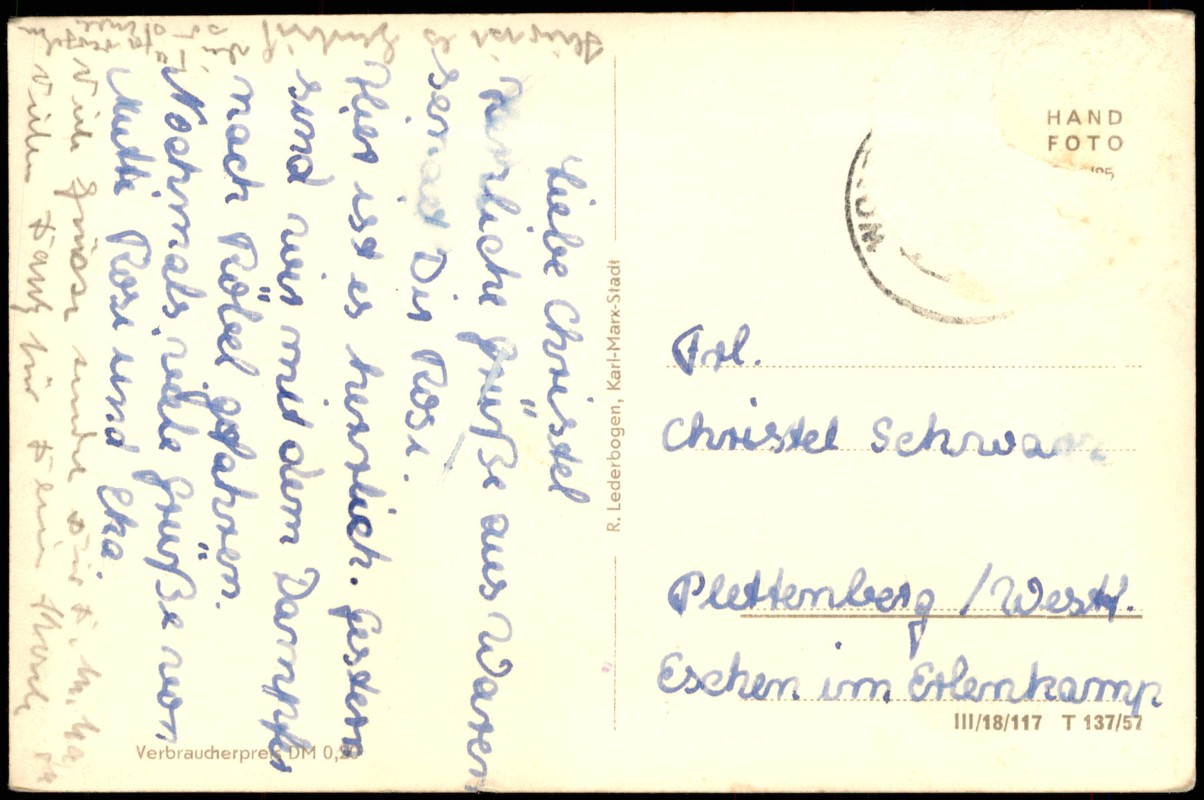 Liebe Christel
Herzliche Grüße aus Waren
sendet Dir Rosi.
Hier ist es herrlich. Gestern
sind wir mit dem Dampfer
nach Röbel gefahren.
Nochmals viele Grüße von
Mutti Rosi und
Viele Grüsse sendet Dir
Vielen Dank für Deine
HAND
FOTO
Frl.
Christel Schwarz
Plettenberg / Westf.
Eschen im Erlenkamp
III/18/117 T 137/57
R. Lederbogen, Karl-Marx-Stadt
Verbraucherpreis DM 0,20